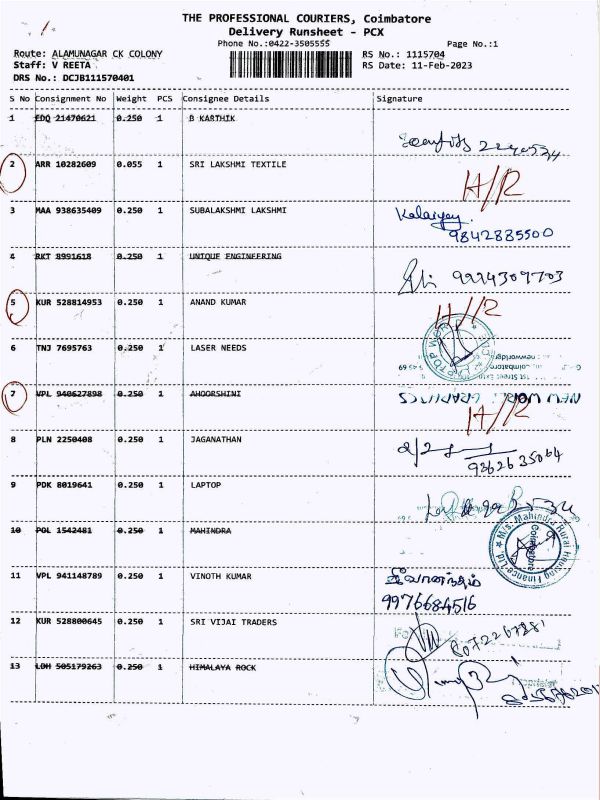 THE PROFESSIONAL COURIERS, Coimbatore
Delivery Runsheet - PCX
Phone No.:0422-3505555 Page No.:1
Route: ALAMUNAGAR CK COLONY RS No.: 1115704
Staff: V REETA RS Date: 11-Feb-2023
DRS No.: DCJB111570401
S No Consignment No Weight PCS Consignee Details Signature
1 EDQ 21470621 0.250 1 B KARTHIK
2 ARR 10282609 0.055 1 SRI LAKSHMI TEXTILE
H/R
3 MAA 938635409 0.250 1 SUBALAKSHMI LAKSHMI
9842885500
4 RKT 8991618 0.250 1 UNIQUE ENGINEERING
9994309703
5 KUR 528814953 0.250 1 ANAND KUMAR
H/R
6 TNJ 7695763 0.250 1 LASER NEEDS
7 VPL 940627898 0.250 1 AHOORSHINI
H/R
8 PLN 2250408 0.250 1 JAGANATHAN
9362635064
9 PDK 8019641 0.250 1 LAPTOP
10 POL 1542481 0.250 1 MAHINDRA
M/s. Mahindra Rural Housing Finance Ltd.
Coimbatore
11 VPL 941148789 0.250 1 VINOTH KUMAR
ஜீவானந்தம்
9976684516
12 KUR 528800645 0.250 1 SRI VIJAI TRADERS
13 LDH 505179263 0.250 1 HIMALAYA ROCK